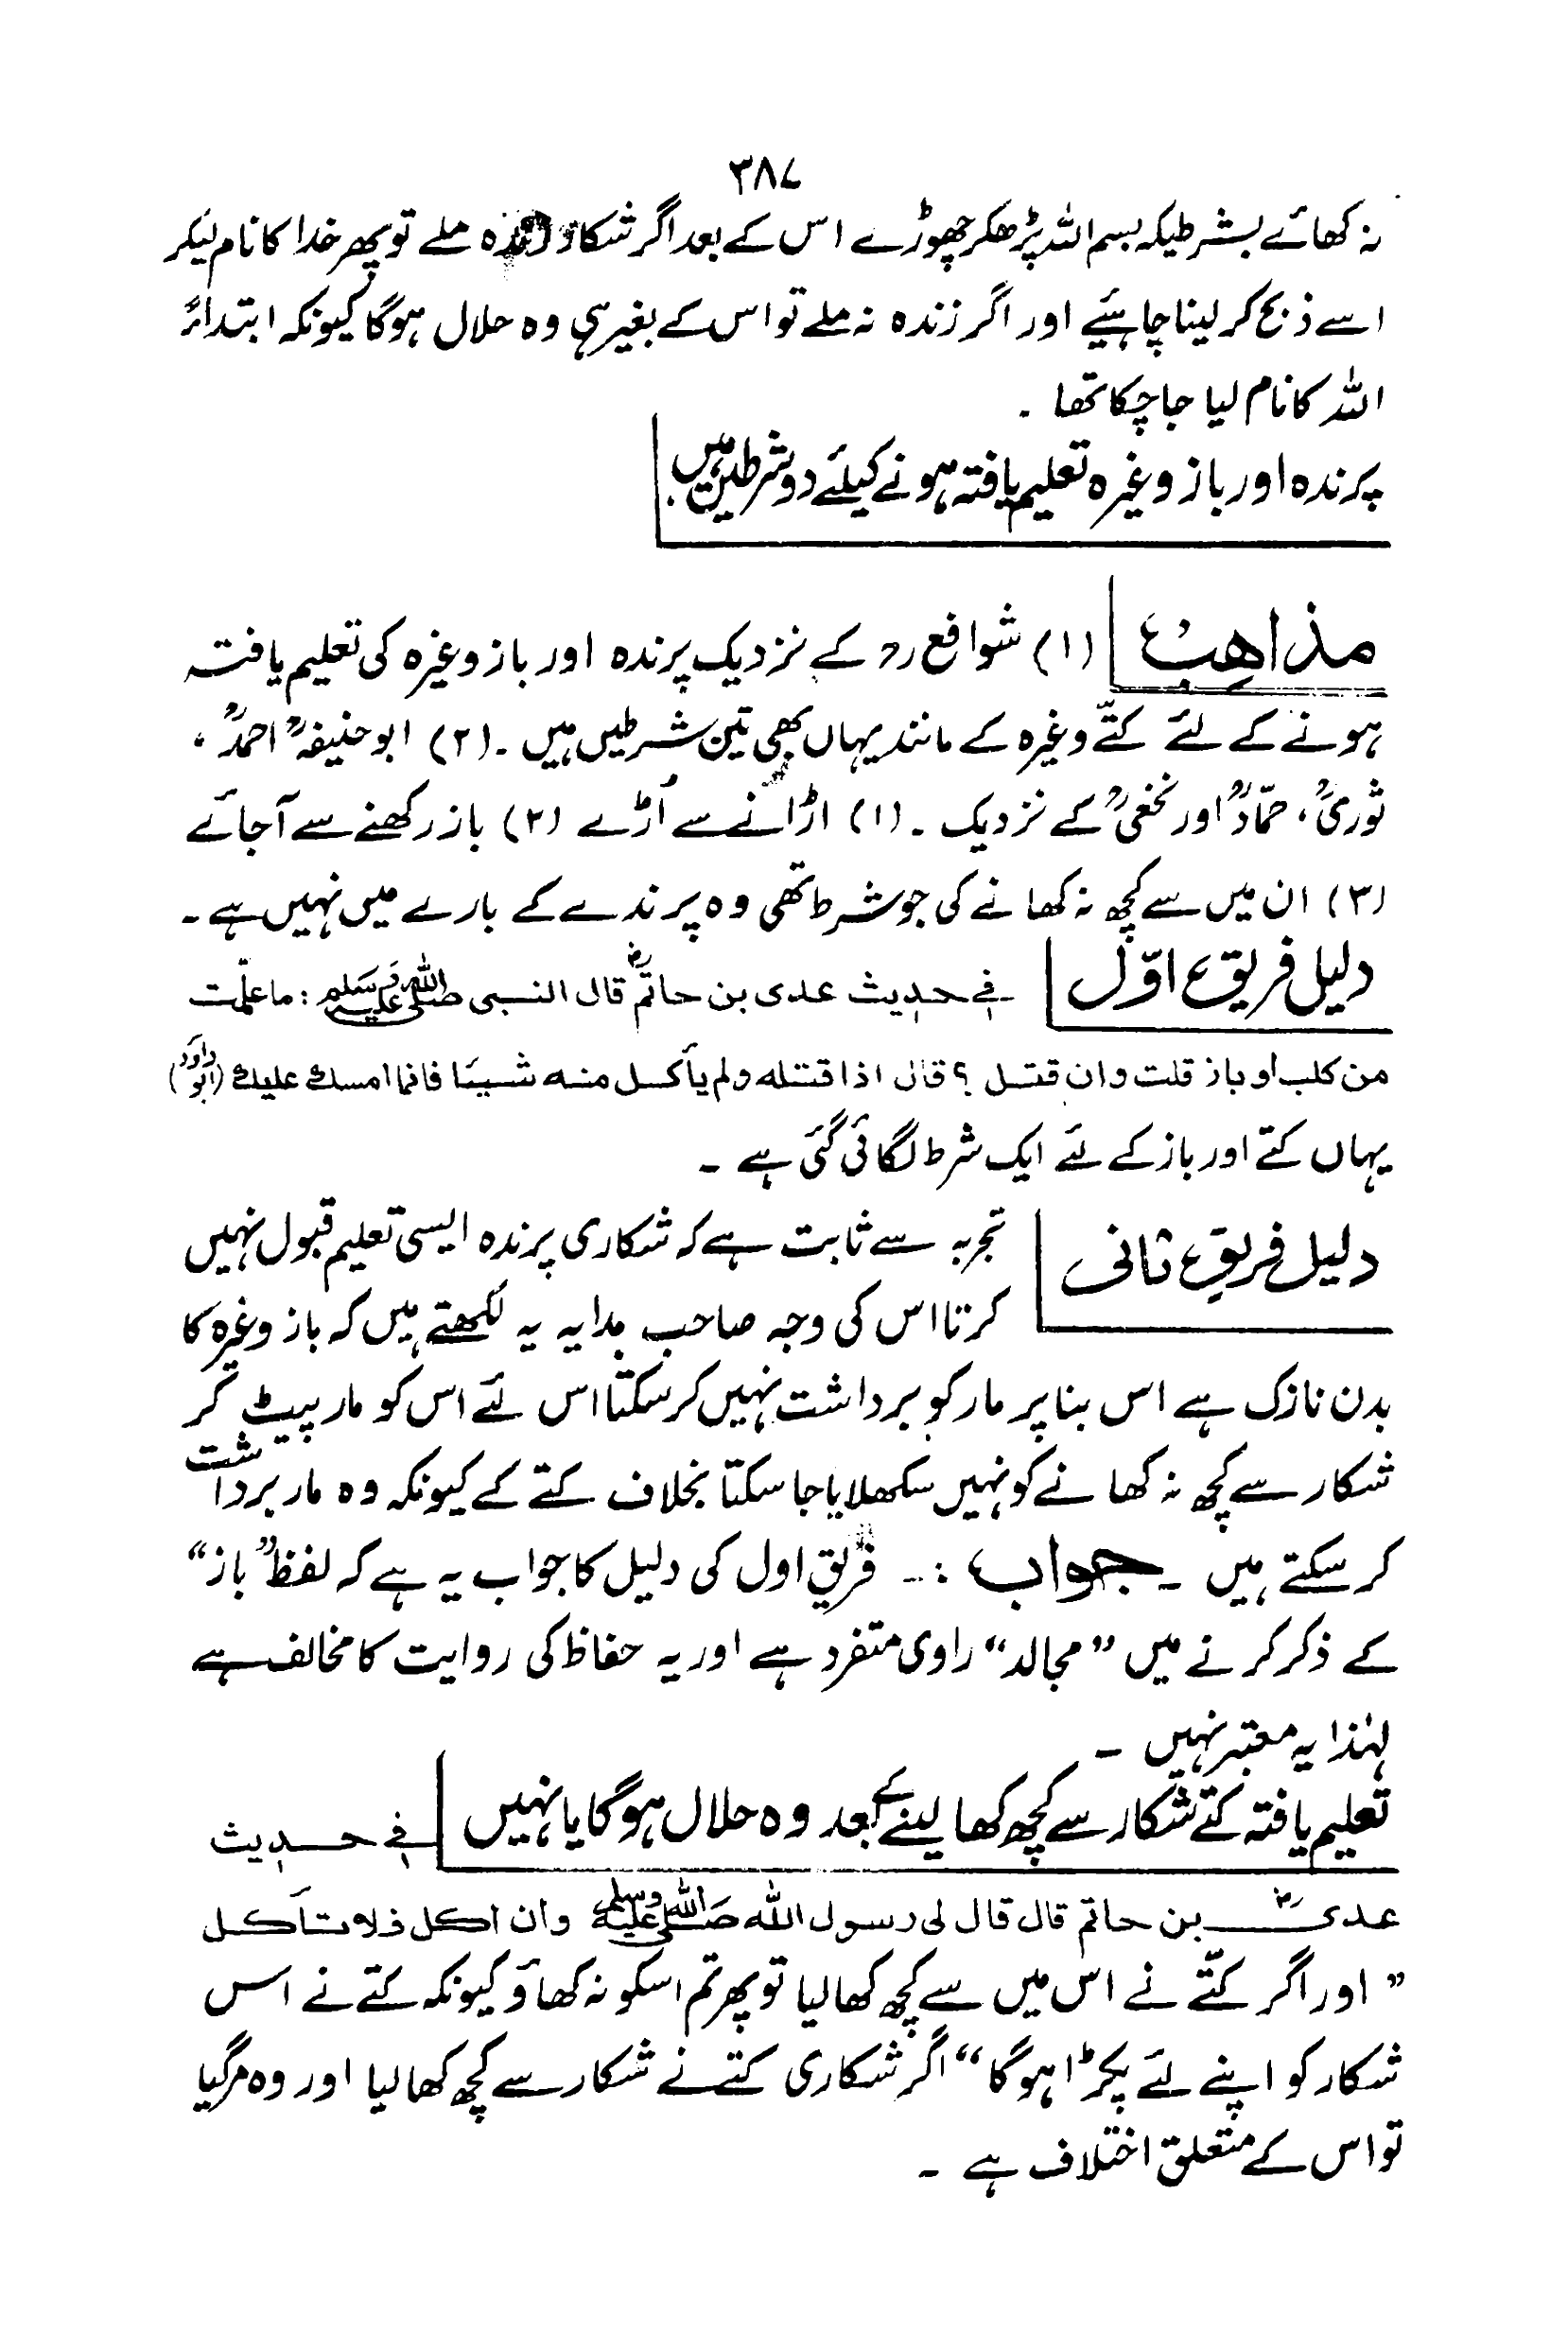 ۳۸۷
نہ کھائے بشرطیکہ بسم اللہ پڑھکر چھوڑے اس کے بعد اگر شکار زندہ ملے تو پھر خدا کا نام لیکر
اسے ذبح کر لینا چاہئیے اور اگر زندہ نہ ملے تو اس کے بغیر ہی وہ حلال ہوگا کیونکہ ابتداءً
اللہ کا نام لیا جا چکا تھا ۔
پرندہ اور باز وغیرہ تعلیم یافتہ ہونے کیلئے دو شرطیں ہیں
مذاھب (۱) شوافع رح کے نزدیک پرندہ اور باز وغیرہ کی تعلیم یافتہ
ہونے کے لئے کتّے وغیرہ کے مانند یہاں بھی تین شرطیں ہیں ۔ (۲) ابو حنیفہؒ احمدؒ ،
ثوریؒ ، حمّادؒ اور نخعیؒ کے نزدیک ۔ (۱) اڑانے سے اُڑے (۲) باز رکھنے سے آجائے
(۳) ان میں سے کچھ نہ کھانے کی جو شرط تھی وہ پرندے کے بارے میں نہیں ہے ۔
دلیل فریق اوّل فی حدیث عدی بن حاتمؓ قال النبی صلی اللہ علیہ وسلم : ما علّمت
من کلب او باز قلت وان قتل ؟ قال اذا قتلہ ولم یأکل منہ شیئا فانما امسک علیک (ابو داود)
یہاں کتے اور باز کے لئے ایک شرط لگائی گئی ہے ۔
دلیل فریق ثانی تجربہ سے ثابت ہے کہ شکاری پرندہ ایسی تعلیم قبول نہیں
کرتا اس کی وجہ صاحب ہدایہ یہ لکھتے ہیں کہ باز وغیرہ کا
بدن نازک ہے اس بنا پر مار کو برداشت نہیں کر سکتا اس لئے اس کو مار پیٹ کر
شکار سے کچھ نہ کھانے کو نہیں سکھلایا جا سکتا بخلاف کتے کے کیونکہ وہ مار برداشت
کر سکتے ہیں ۔ جواب :۔ فریق اول کی دلیل کا جواب یہ ہے کہ لفظ ”باز“
کے ذکر کرنے میں ”مجالد“ راوی متفرد ہے اور یہ حفاظ کی روایت کا مخالف ہے
لہٰذا یہ معتبر نہیں ۔
تعلیم یافتہ کتے شکار سے کچھ کھا لینے کے بعد وہ حلال ہوگا یا نہیں فی حدیث
عدیؓ بن حاتم قال قال لی رسول اللہ صلی اللہ علیہ وسلم وان اکل فلا تاکل
” اور اگر کتّے نے اس میں سے کچھ کھا لیا تو پھر تم اسکو نہ کھاؤ کیونکہ کتے نے اس
شکار کو اپنے لئے پکڑا ہوگا “ اگر شکاری کتے نے شکار سے کچھ کھا لیا اور وہ مر گیا
تو اس کے متعلق اختلاف ہے ۔